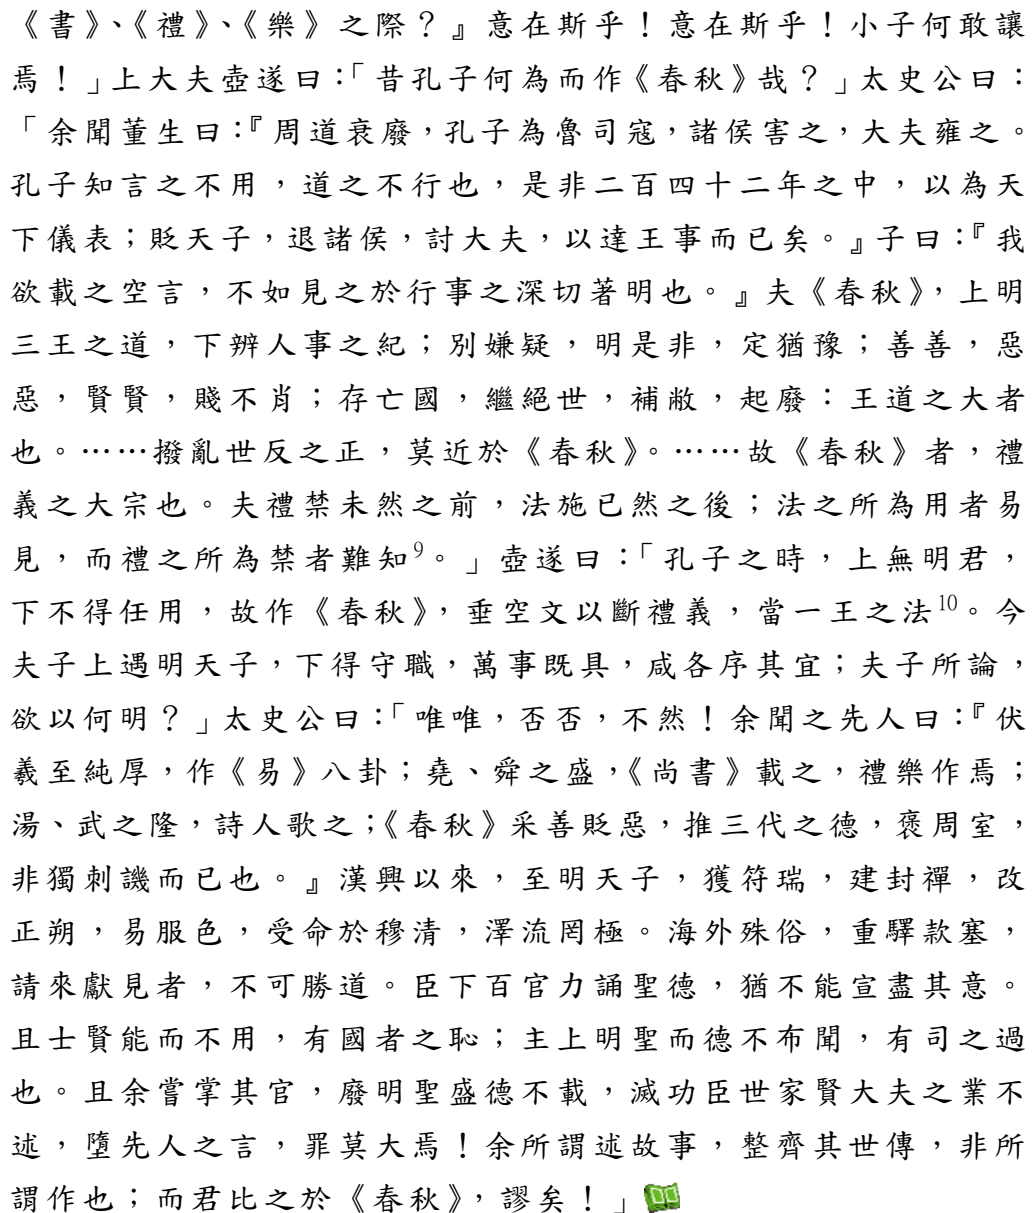 《書》、《禮》、《樂》之際？』意在斯乎！意在斯乎！小子何敢讓
焉！」上大夫壺遂曰：「昔孔子何為而作《春秋》哉？」太史公曰：
「余聞董生曰：『周道衰廢，孔子為魯司寇，諸侯害之，大夫雍之。
孔子知言之不用，道之不行也，是非二百四十二年之中，以為天
下儀表；貶天子，退諸侯，討大夫，以達王事而已矣。』子曰：『我
欲載之空言，不如見之於行事之深切著明也。』夫《春秋》，上明
三王之道，下辨人事之紀；別嫌疑，明是非，定猶豫；善善，惡
惡，賢賢，賤不肖；存亡國，繼絕世，補敝，起廢：王道之大者
也。……撥亂世反之正，莫近於《春秋》。……故《春秋》者，禮
義之大宗也。夫禮禁未然之前，法施已然之後；法之所為用者易
見，而禮之所為禁者難知9。」壺遂曰：「孔子之時，上無明君，
下不得任用，故作《春秋》，垂空文以斷禮義，當一王之法10。今
夫子上遇明天子，下得守職，萬事既具，咸各序其宜；夫子所論，
欲以何明？」太史公曰：「唯唯，否否，不然！余聞之先人曰：『伏
羲至純厚，作《易》八卦；堯、舜之盛，《尚書》載之，禮樂作焉；
湯、武之隆，詩人歌之；《春秋》采善貶惡，推三代之德，褒周室，
非獨刺譏而已也。』漢興以來，至明天子，獲符瑞，建封禪，改
正朔，易服色，受命於穆清，澤流罔極。海外殊俗，重驛款塞，
請來獻見者，不可勝道。臣下百官力誦聖德，猶不能宣盡其意。
且士賢能而不用，有國者之恥；主上明聖而德不布聞，有司之過
也。且余嘗掌其官，廢明聖盛德不載，滅功臣世家賢大夫之業不
述，墮先人之言，罪莫大焉！余所謂述故事，整齊其世傳，非所
謂作也；而君比之於《春秋》，謬矣！」